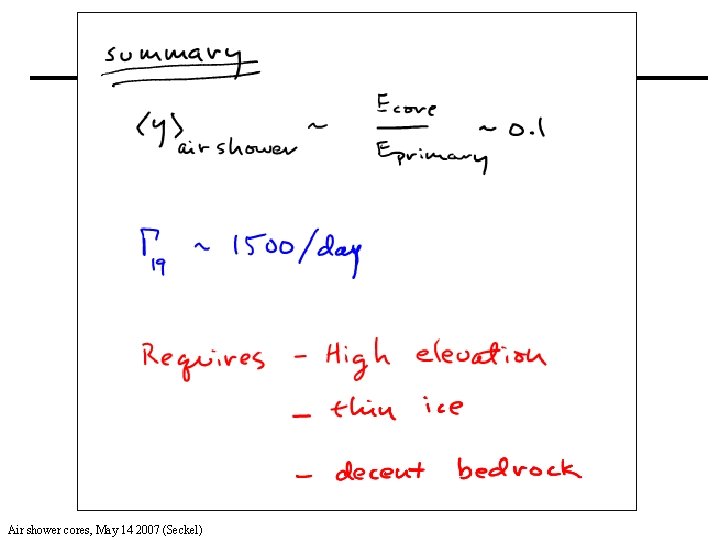 summary
⟨y⟩ air shower ~ Ecore / Eprimary ~ 0.1
Γ19 ~ 1500/day
Requires - High elevation
- thin ice
- decent bedrock
Air shower cores, May 14 2007 (Seckel)